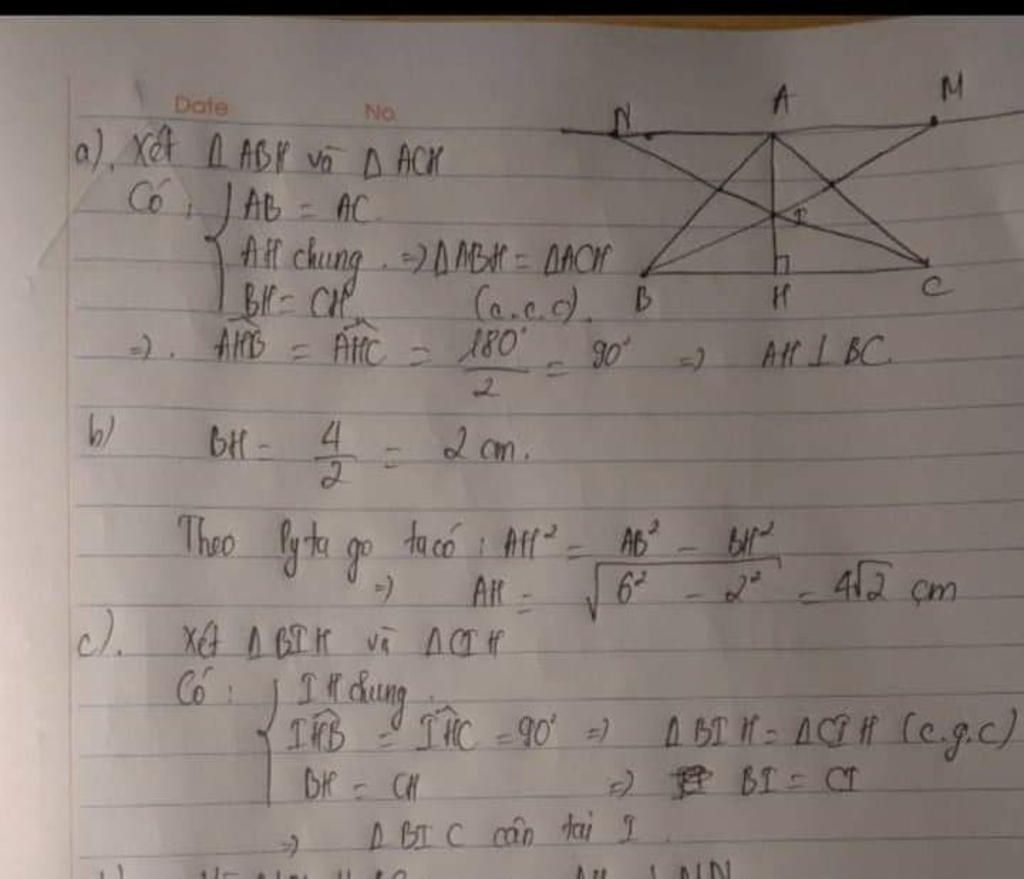 Date No.
N A M
a). Xét Δ ABH và Δ ACH
Có : AB = AC
AH chung. => ΔABH = ΔACH
I
BH = CH (c.c.c).
B H C
=>. AHB = AHC = 180° / 2 = 90° => AH ⊥ BC
b) BH = 4 / 2 = 2 cm.
Theo Pytago ta có : AH² = AB² - BH²
=> AH = √6² - 2² = 4√2 cm
c). Xét Δ BIH và Δ CIH
Có : IH chung
IHB = IHC = 90° => Δ BIH = Δ CIH (c.g.c)
BH = CH => BI = CI
=> Δ BIC cân tại I